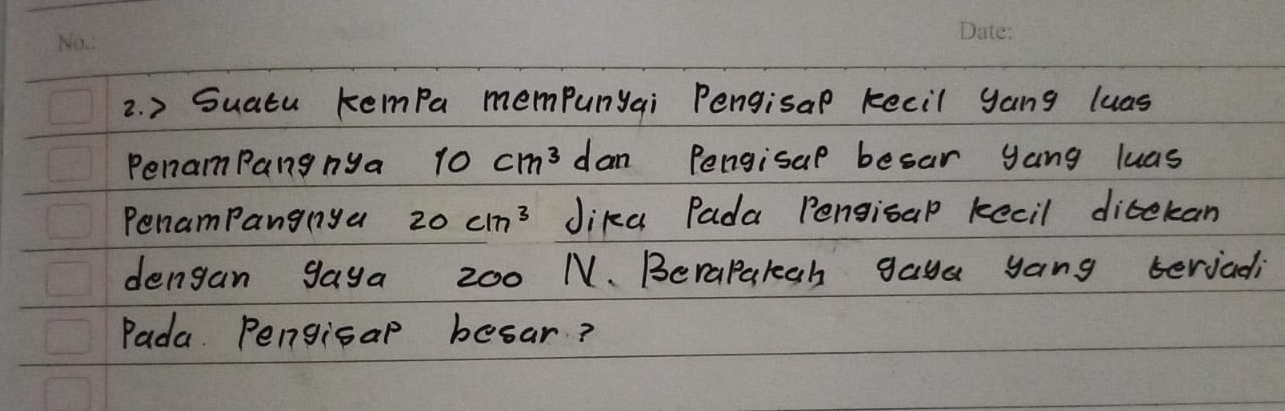 No.:
Date:
2.> Suatu kempa mempunyai Pengisap kecil yang luas
Penampangnya 10 cm³ dan Pengisap besar yang luas
Penampangnya 20 cm³ Jika Pada Pengisap kecil ditekan
dengan gaya 200 N. Berapakah gaya yang terjadi
Pada. Pengisap besar.?